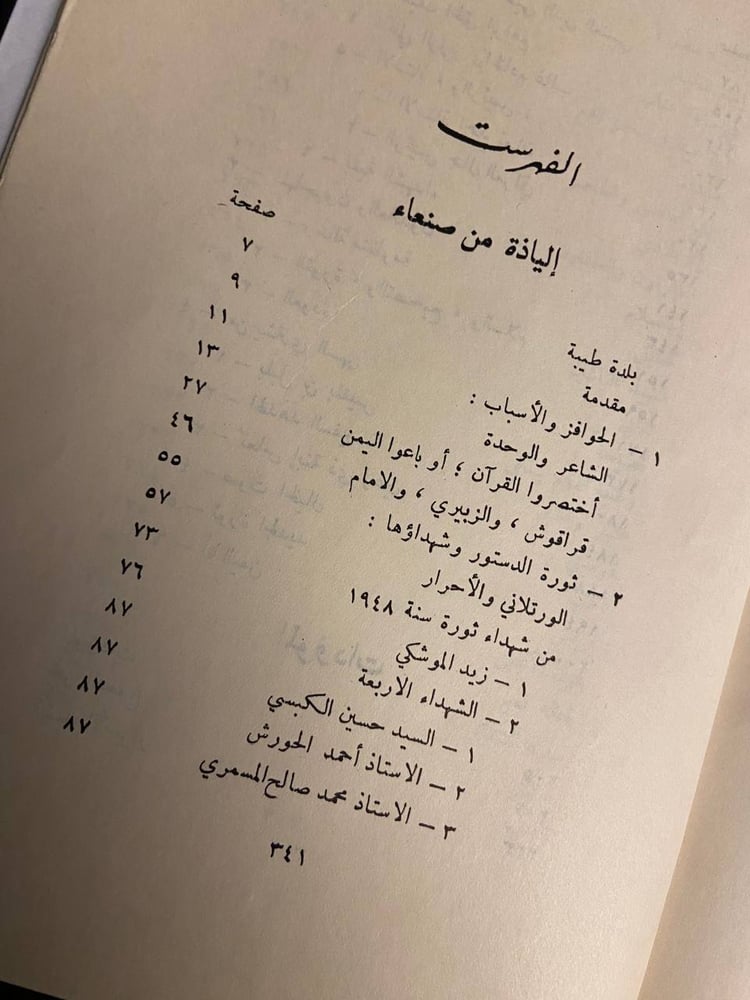 الفهرست
إلياذة من صنعاء
صفحة
بلدة طيبة ٧
مقدمة ٩
١ – الحوافز والأسباب : ١١
الشاعر والوحدة ١٣
أختصروا القرآن ؛ أو باعوا اليمن ٢٧
قراقوش ، والزبيري ، والامام ٤٦
٢ – ثورة الدستور وشهداؤها : ٥٥
الورتلاني والأحرار ٥٧
من شهداء ثورة سنة ١٩٤٨ ٧٣
١ – زيد الموشكي ٧٦
٢ – الشهداء الاربعة ٨٧
١ – السيد حسين الكبسي ٨٧
٢ – الاستاذ أحمد الحورش ٨٧
٣ – الاستاذ محمد صالح المسمري ٨٧
٣٤١